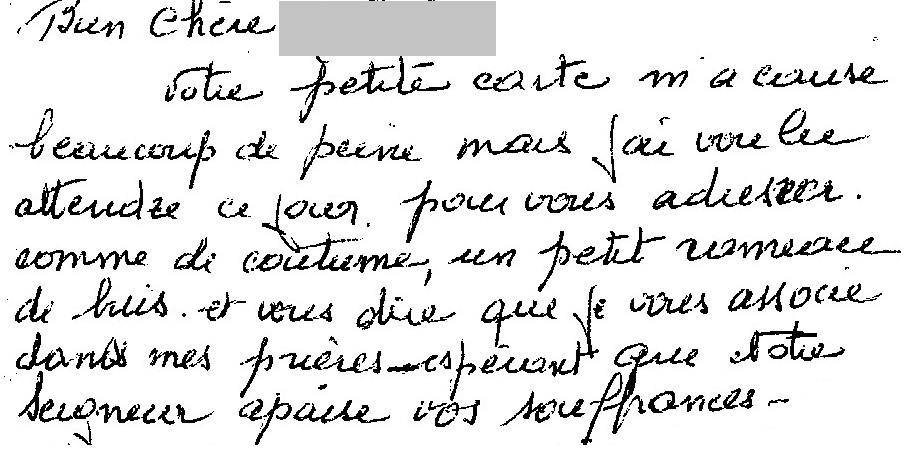 Bien Chère
votre petite carte m'a cause
beaucoup de peine mais j'ai voulu
attendre ce jour. pour vous adresser.
comme de coutume, un petit rameau
de buis. et vous dire que je vous associe
dans mes prières - espérant que Notre
Seigneur apaise vos souffrances -